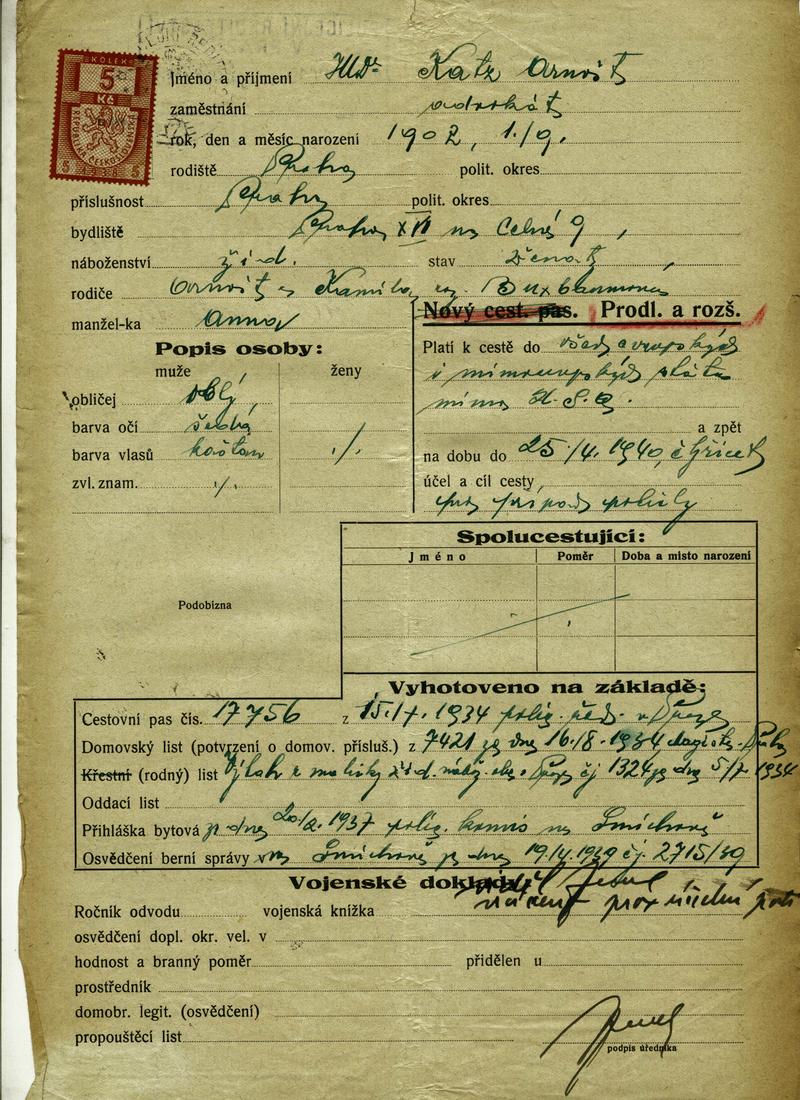 KOLEK
5
Kč
REPUBLIKA ČESKOSLOVENSKÁ
5 1938 5
Jméno a příjmení JUDr Katz Arnošt
zaměstnání advokát
rok, den a měsíc narození 1902, 1./9.
rodiště Praha polit. okres
příslušnost Praha polit. okres
bydliště Praha XVI na Celné 9,
náboženství žid. stav ženatý,
rodiče Arnošt a Kamila roz. Buxbaumova
manžel-ka Anna
Nový cest. pas. Prodl. a rozš.
Popis osoby:
muže ženy
obličej oblý,
barva očí šedá
barva vlasů kaštan ./.
zvl. znam. ./.
Platí k cestě do všech evropských
i mimoevropských států
mimo
a zpět
na dobu do 25./4. 1940, čtyřicet
účel a cíl cesty
pro případ potřeby
Spolucestující:
Jméno Poměr Doba a místo narození
Podobizna
Vyhotoveno na základě:
Cestovní pas čís. 17756 z 1934 polic. řed. v Praze
Domovský list (potvrzení o domov. přísluš.) z 7421 ze dne 16./8. 1934 Prahy
Křestní (rodný) list Výtah z matriky žid. nábož. obce čj 1324 ze dne 5/7 1934
Oddací list
Přihláška bytová ze dne 1937 polic. komis na Smíchově
Osvědčení berní správy na Smíchově ze dne 1939 čj. 2715/39
Vojenské doklady:
Ročník odvodu vojenská knížka
osvědčení dopl. okr. vel. v
hodnost a branný poměr přidělen u
prostředník
domobr. legit. (osvědčení)
propouštěcí list
podpis úředníka